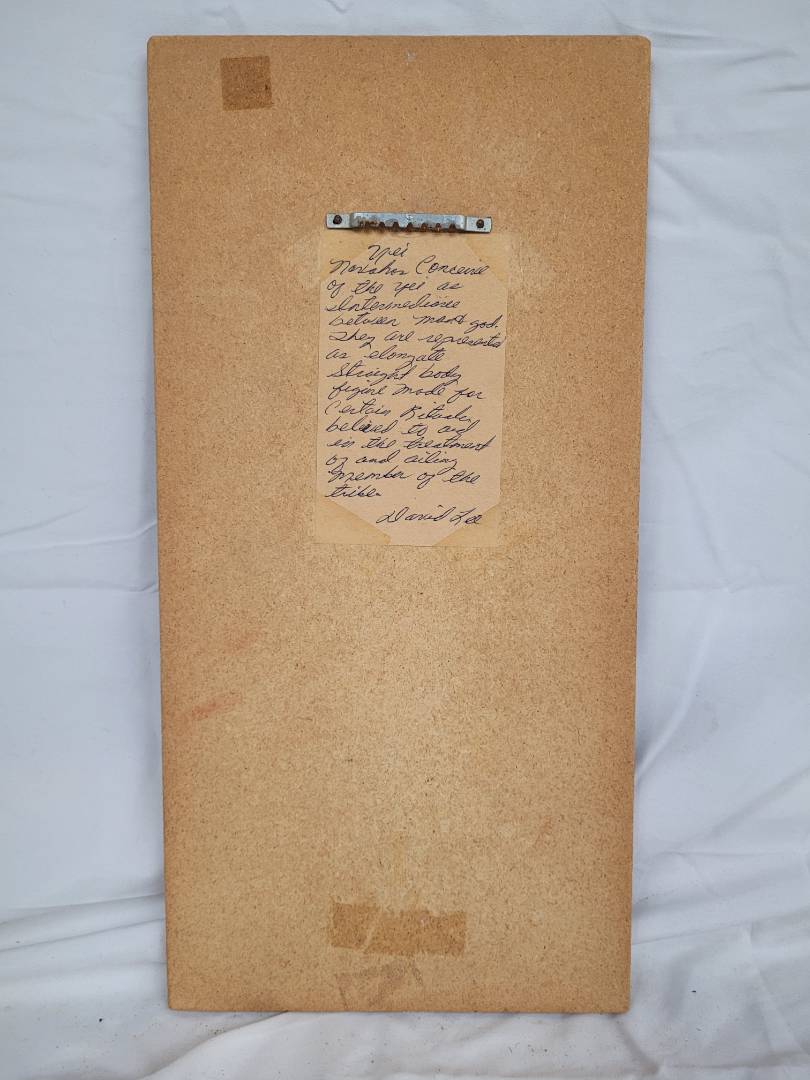 Yei
Navahos Conceive
of the yei as
Intermediaries
between man & god.
They are represented
as elongate
Straight body
figure made for
Certain Rituals
believed to aid
in the treatment
of and ailing
member of the
tribe.
David Lee